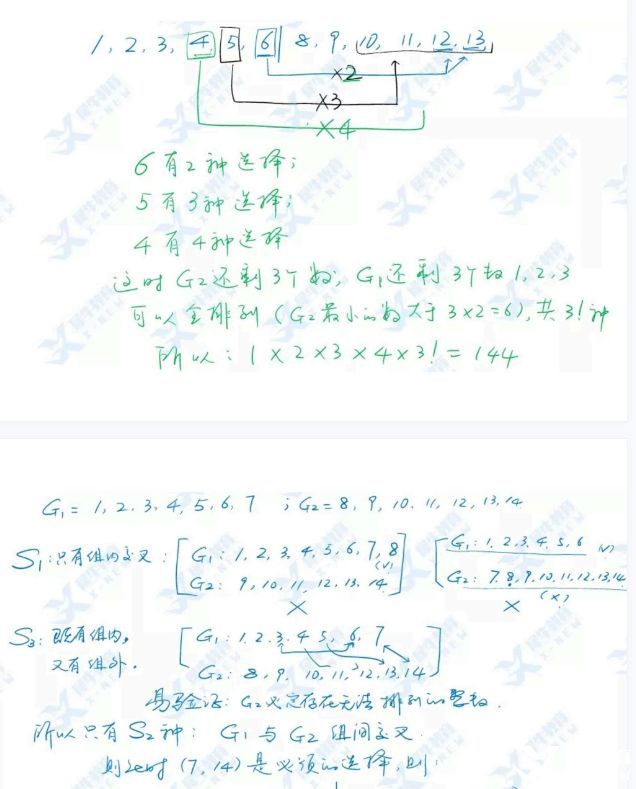 1, 2, 3, 4, 5, 6, 8, 9, 10, 11, 12, 13
×2
×3
×4
6 有 2 种选择;
5 有 3 种选择;
4 有 4 种选择
这时 G2 还剩 3 个数, G1 还剩 3 个数 1, 2, 3
可以全排列 (G2 最小的数大于 3×2=6), 共 3! 种
所以: 1×2×3×4×3! = 144
G1 = 1, 2, 3, 4, 5, 6, 7 ; G2 = 8, 9, 10, 11, 12, 13, 14
S1: 只有组内交叉: G1: 1, 2, 3, 4, 5, 6, 7, 8 (√) G1: 1, 2, 3, 4, 5, 6 (√)
G2: 9, 10, 11, 12, 13, 14 G2: 7, 8, 9, 10, 11, 12, 13, 14
× × (×)
S3: 既有组内, G1: 1, 2, 3, 4, 5, 6, 7
又有组外. G2: 8, 9, 10, 11, 12, 13, 14
易验证: G2 必定存在无法排列的整数.
所以只有 S2 种: G1 与 G2 组间交叉.
则此时 (7, 14) 是必须的选择, 则: